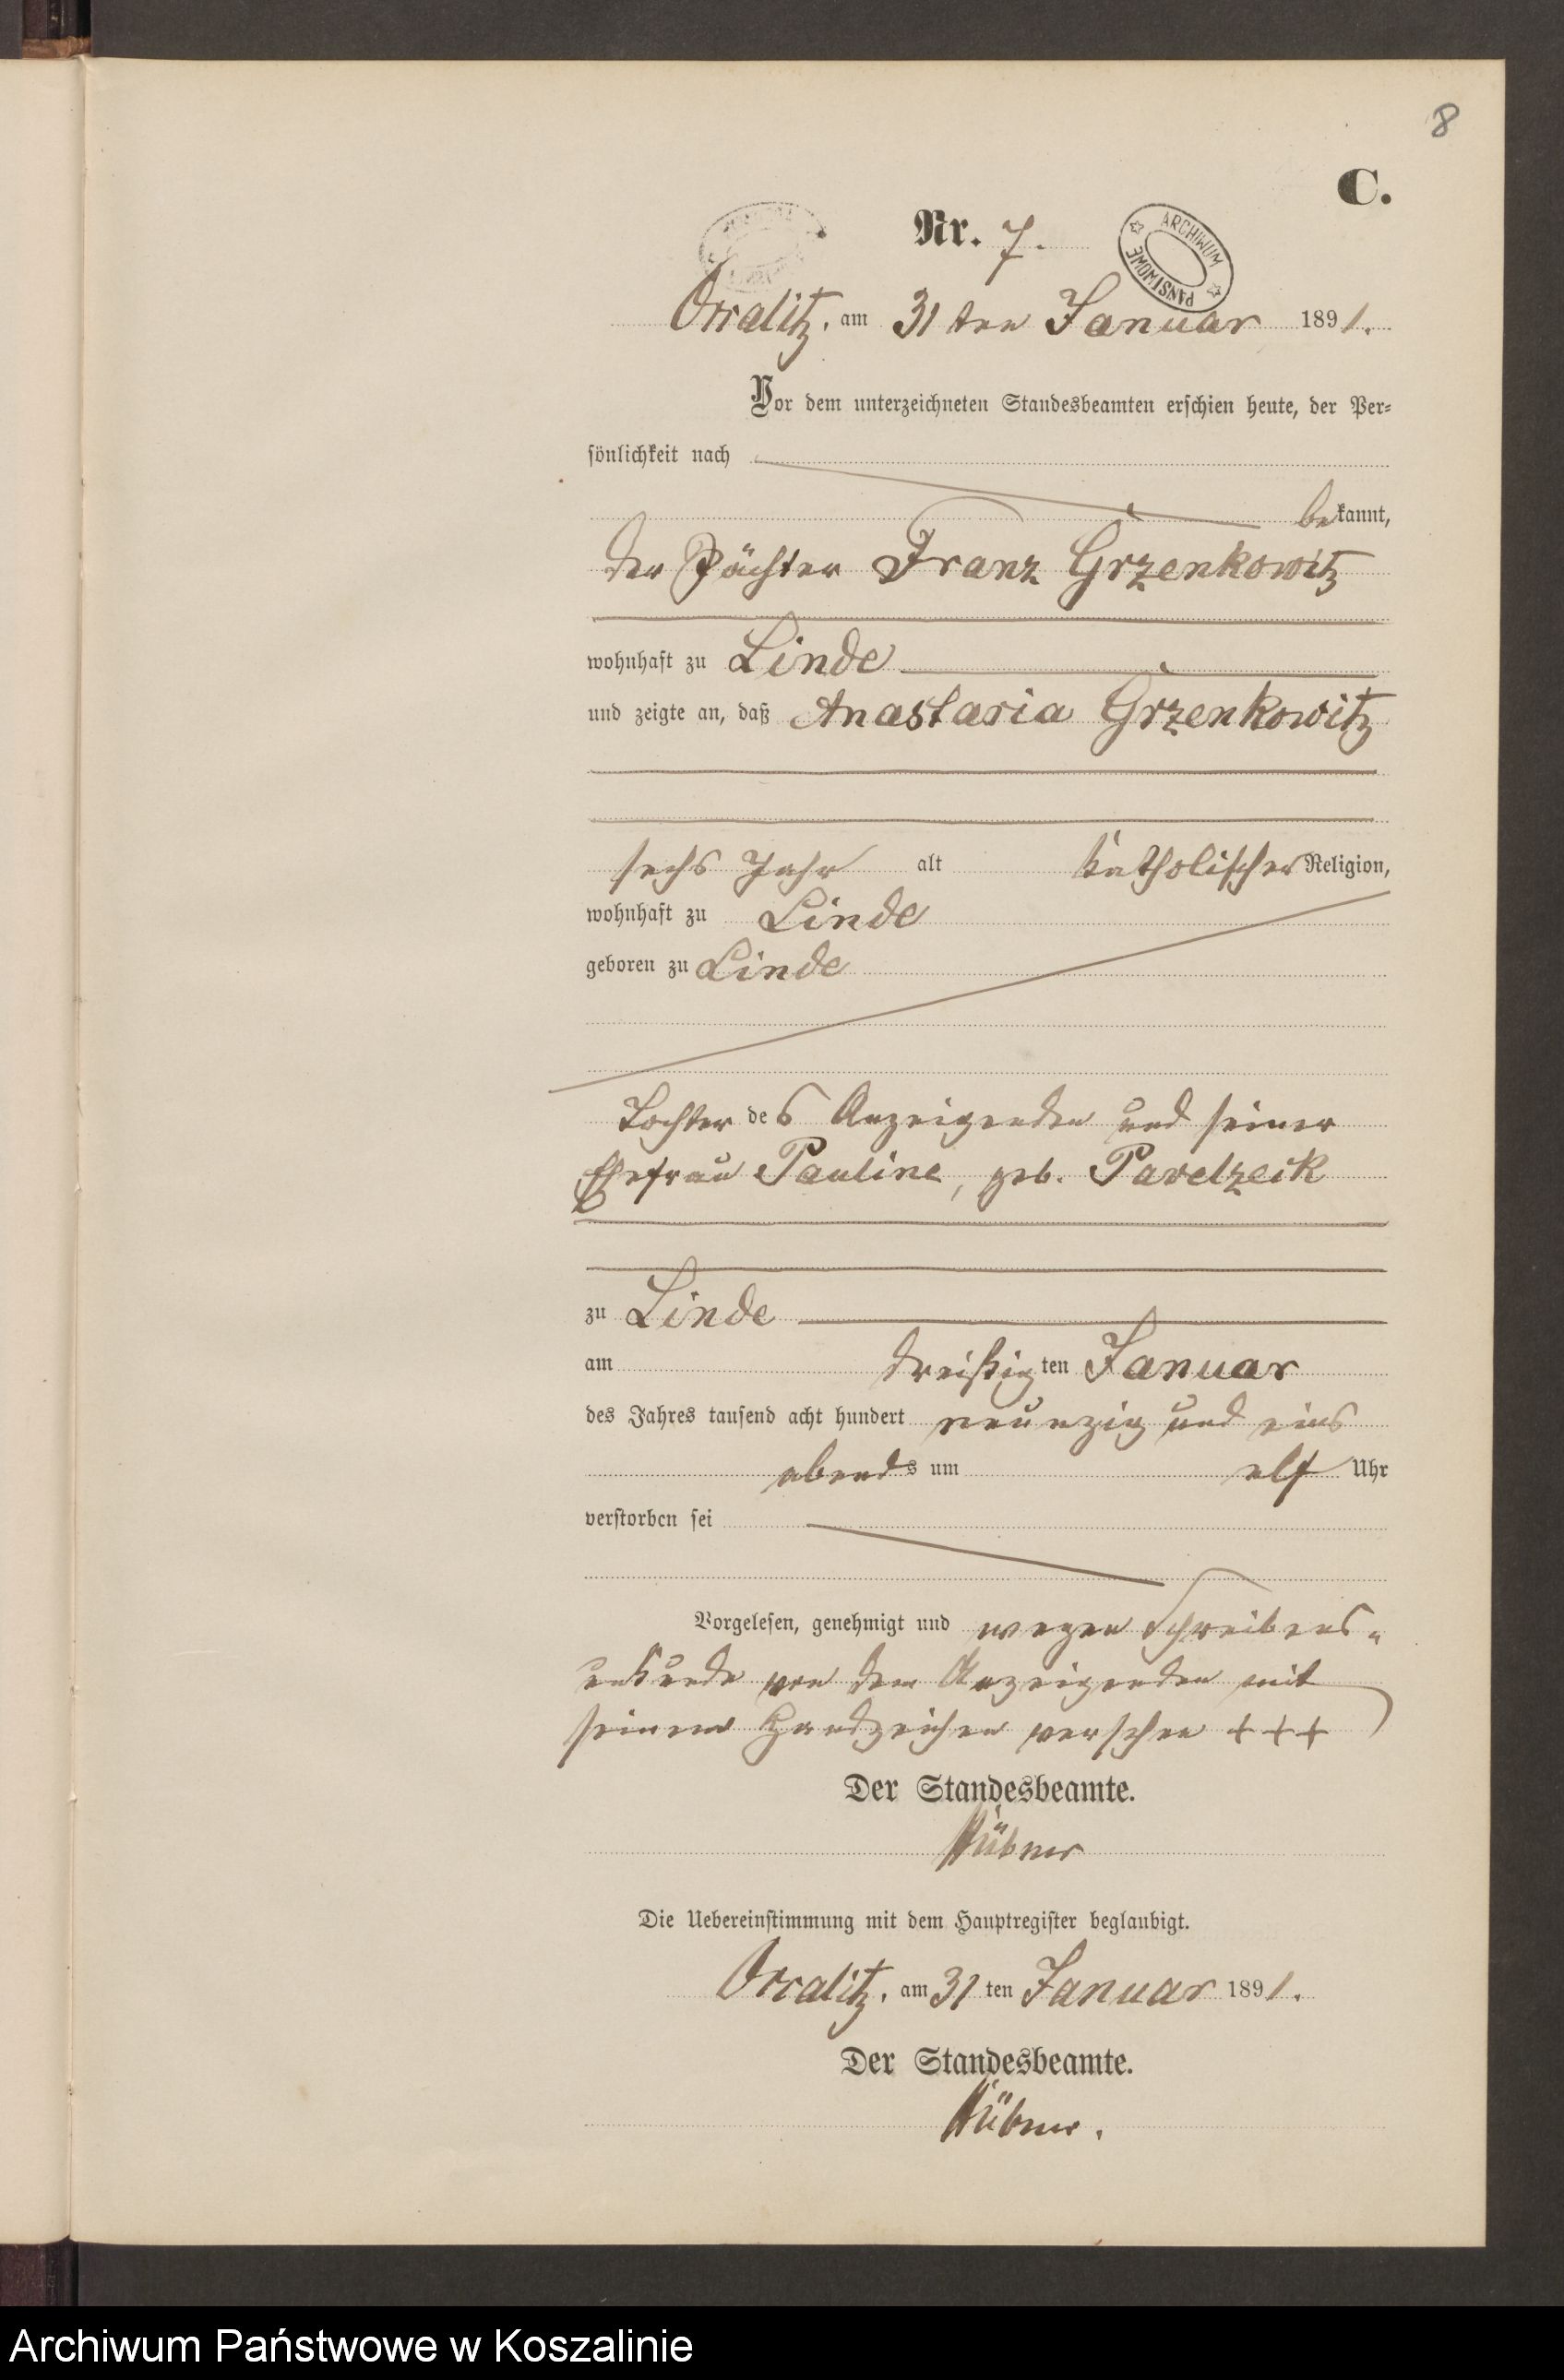 8
C.
Nr. 7.
ARCHIWUM PAŃSTWOWE
Ossalitz, am 31 ten Januar 1891.
Vor dem unterzeichneten Standesbeamten erschien heute, der Per-
sönlichkeit nach
bekannt,
der Pächter Franz Grzenkowitz
wohnhaft zu Linde
und zeigte an, daß Anastasia Grzenkowitz
sechs Jahr alt katholischer Religion,
wohnhaft zu Linde
geboren zu Linde
Tochter des Anzeigenden und seiner
Ehefrau Pauline, geb. Pavelzeik
zu Linde
am dreißigten Januar
des Jahres tausend acht hundert neunzig und eins
abends um elf Uhr
verstorben sei
Vorgelesen, genehmigt und wegen Schreibens-
unkunde von dem Anzeigenden mit
seinem Handzeichen versehen +++
Der Standesbeamte.
Hübner
Die Uebereinstimmung mit dem Hauptregister beglaubigt.
Ossalitz, am 31 ten Januar 1891.
Der Standesbeamte.
Hübner.
Archiwum Państwowe w Koszalinie